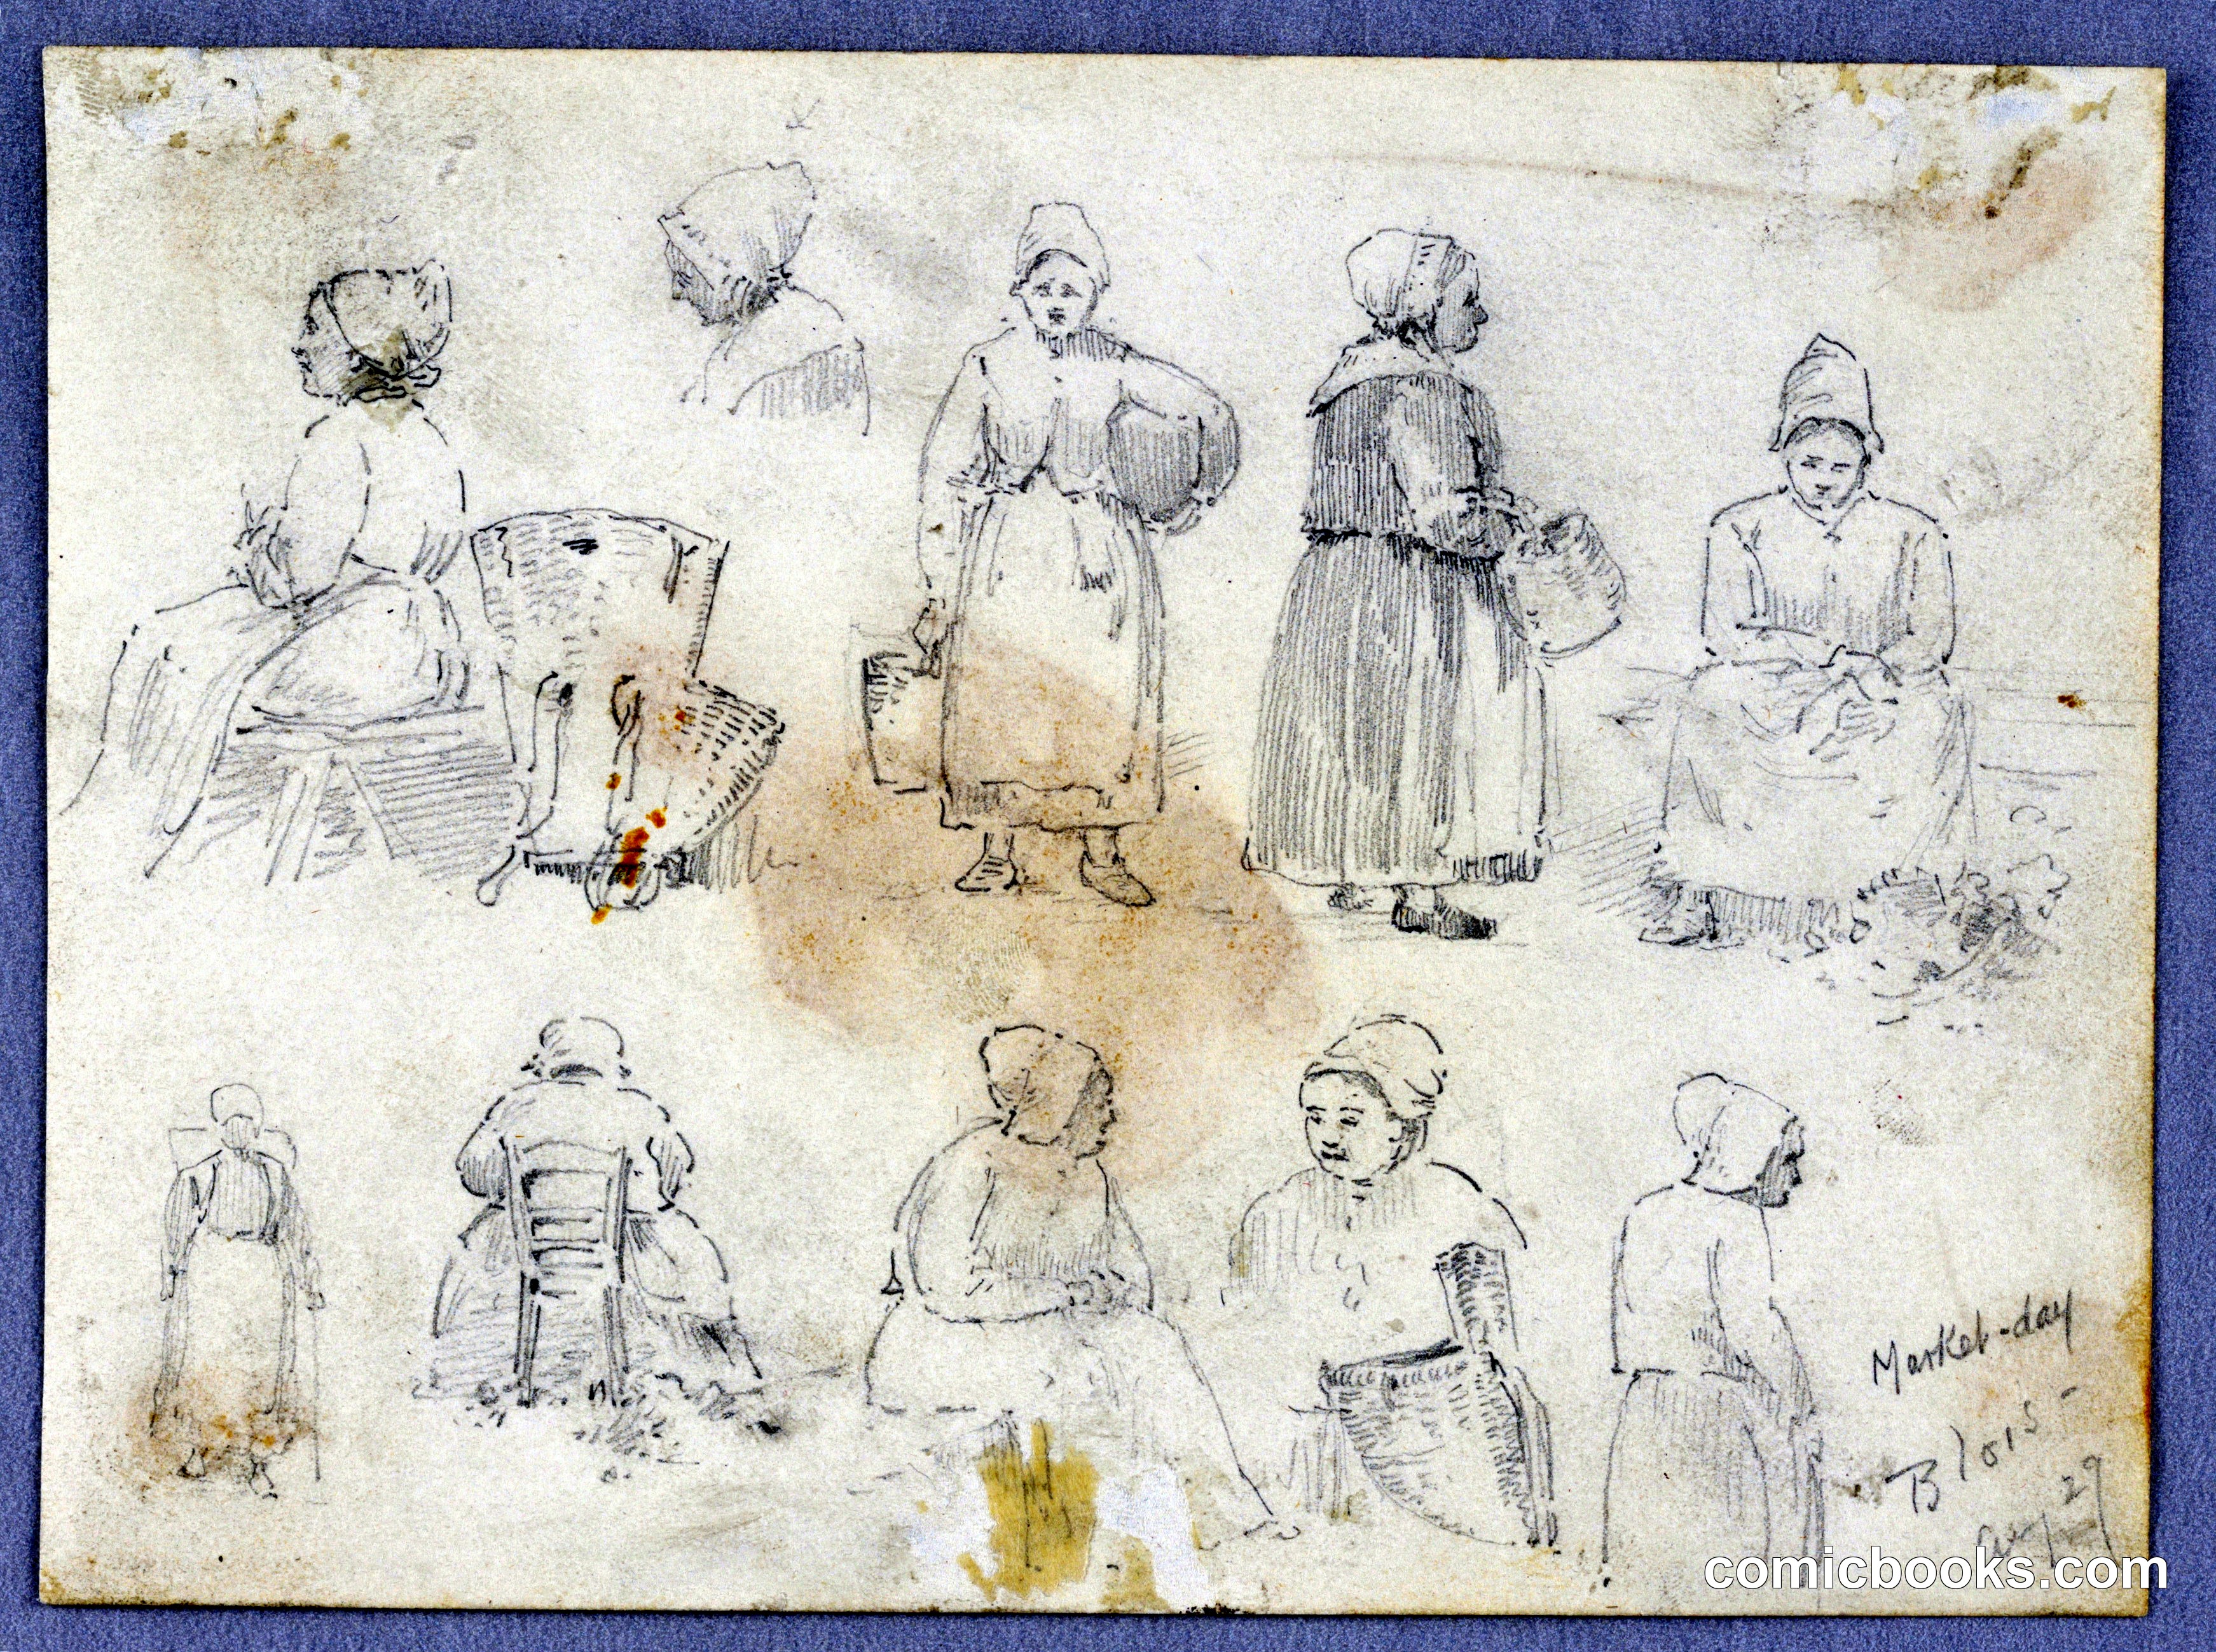 Market-day
Blois -
Aug 29
comicbooks.com